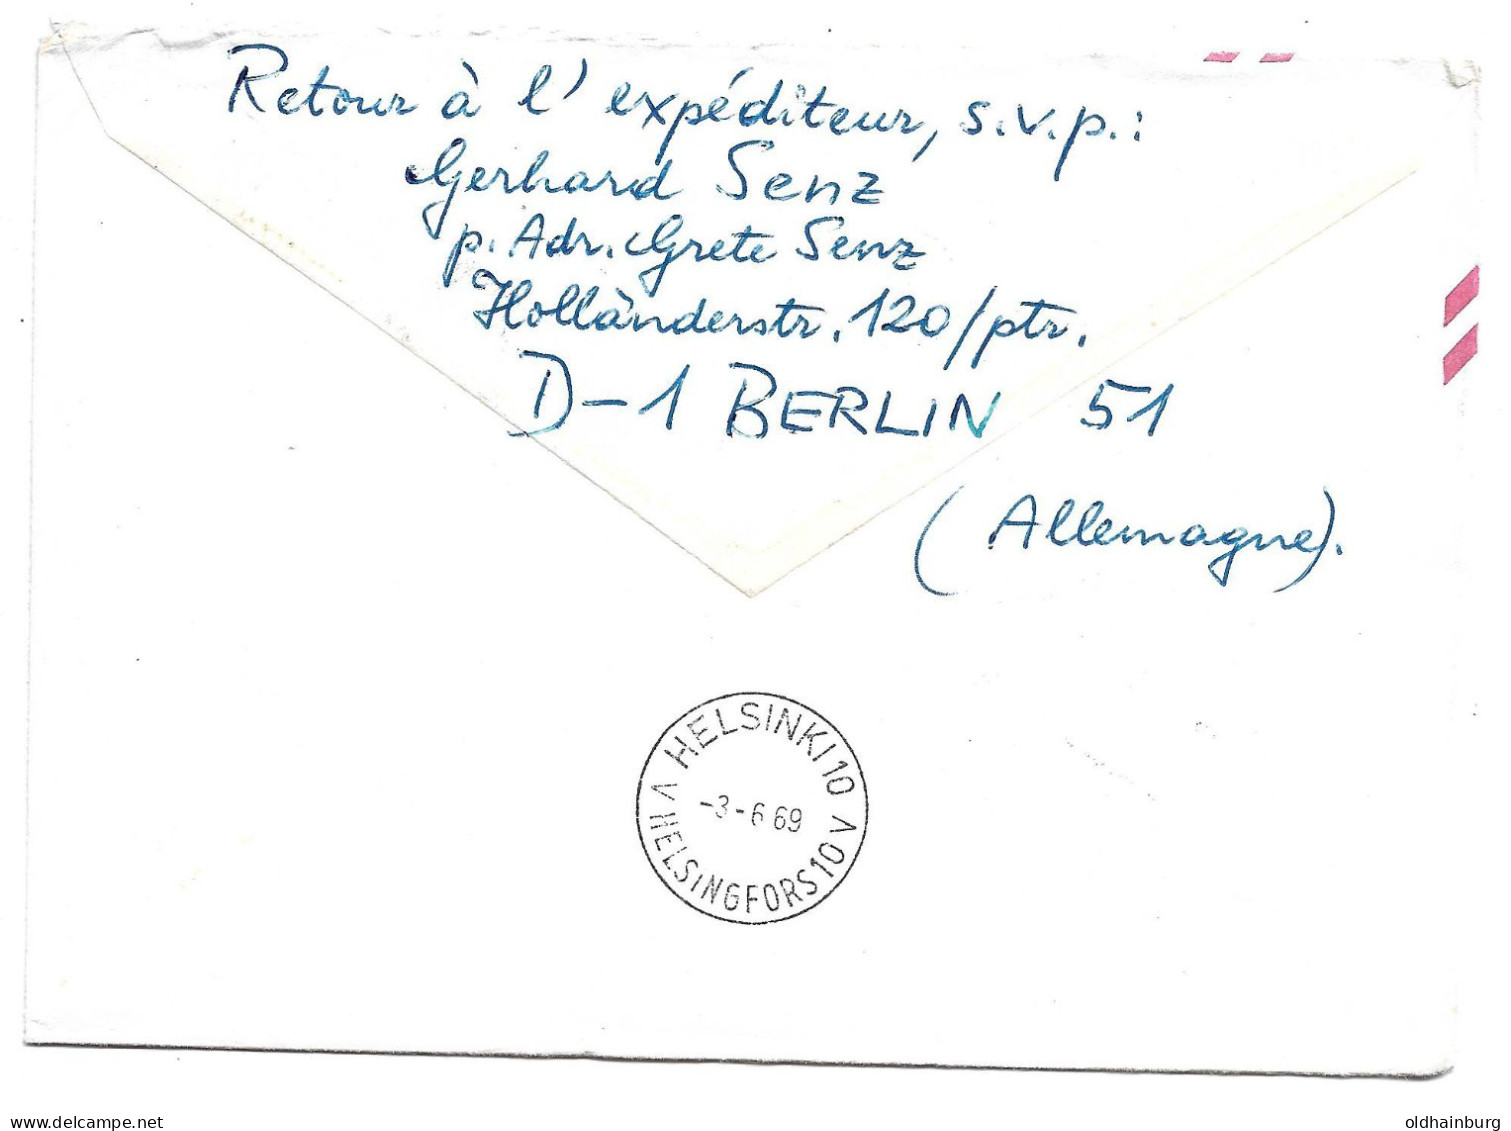 Retour à l'expéditeur, s.v.p.:
Gerhard Senz
p. Adr. Grete Senz
Holländerstr. 120/ptr.
D-1 BERLIN 51
(Allemagne).
HELSINKI 10
-3-6 69
V HELSINGFORS 10 V
www.delcampe.net
oldhainburg